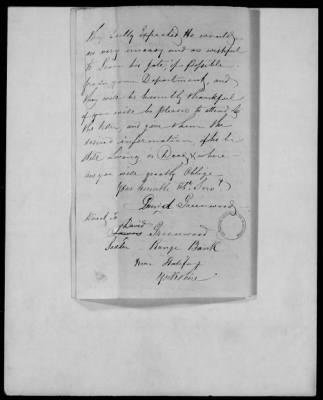 they fully Expected, He would
be very uneasy and are wishful
to know his fate, if Possible
from your Department, and
they will be humbly thankful
if you will be please to attend to
this letter, and give them the
desired information if he be
Still Living or Dead & where
and you will greatly Oblige
Your humble Obt. Servt
David Greenwood
Direct To David
Greenwood
Range Bank
Near Halifax
Yorkshire